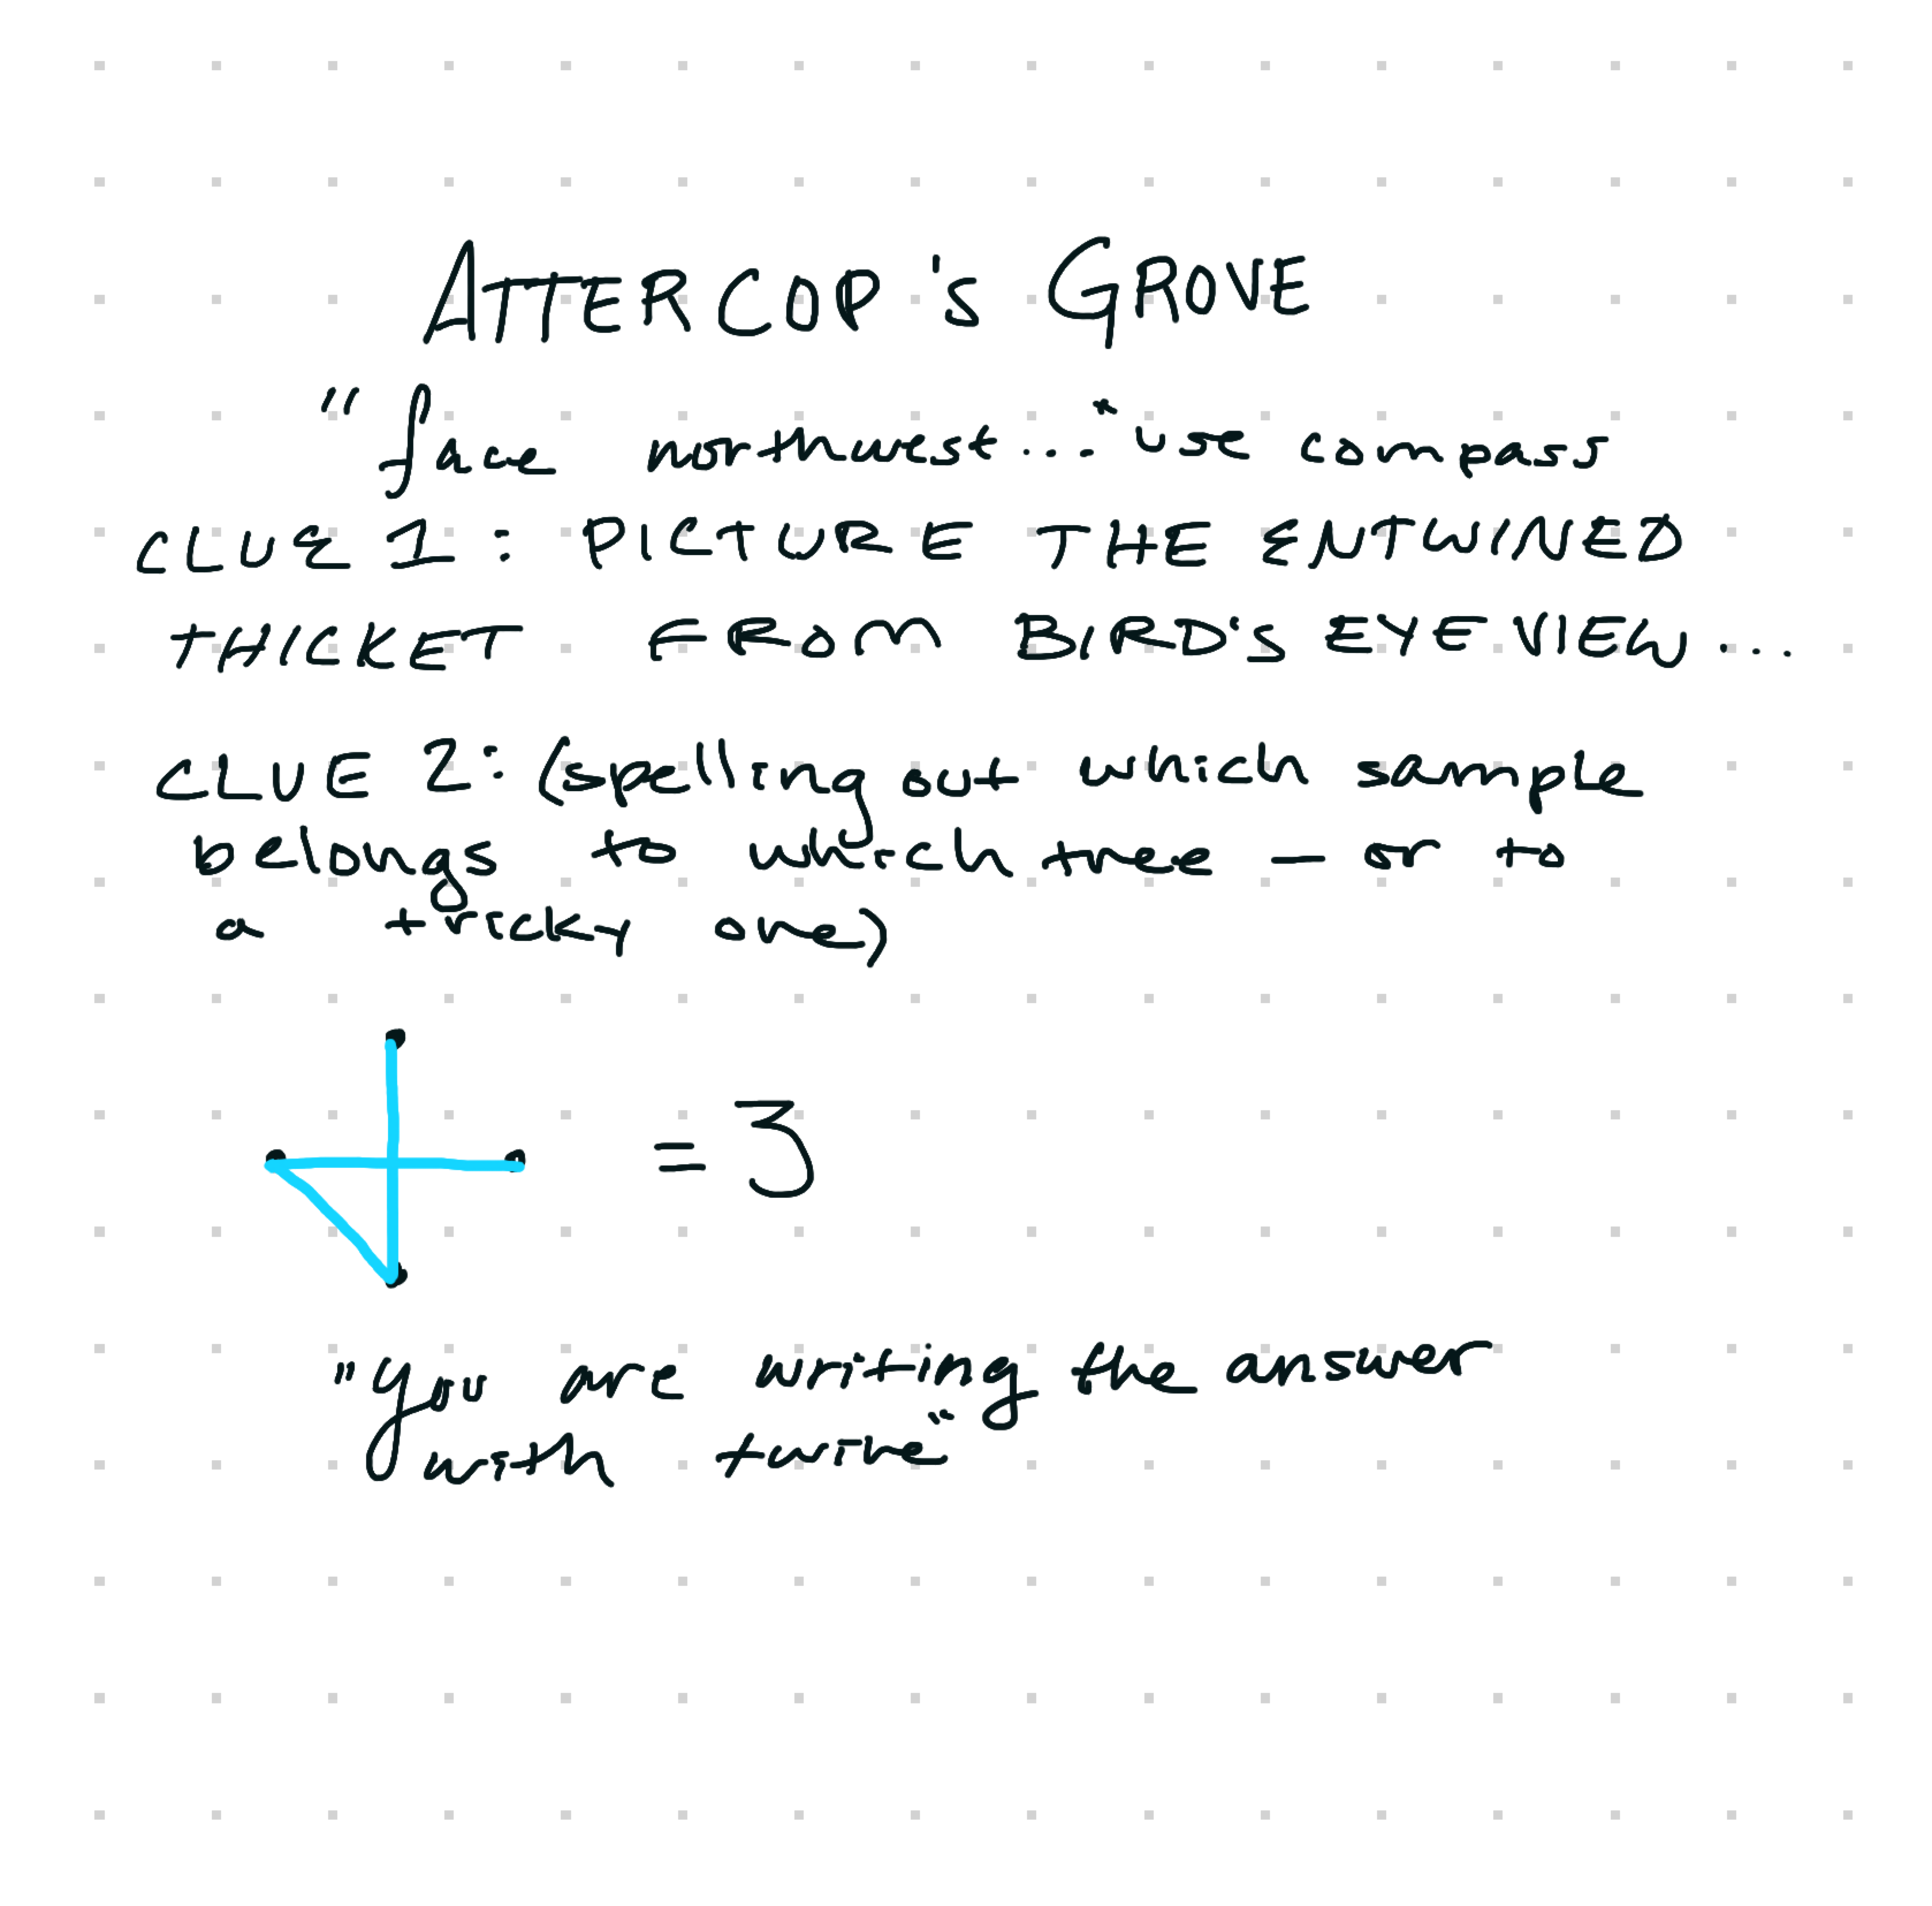 ATTERCOP'S GROVE
"face northwest..." use compass
CLUE 1: PICTURE THE ENTWINED
THICKET FROM BIRD'S EYE VIEW...
CLUE 2: (spelling out which sample
belongs to which tree — or to
a tricky one)
= 3
"you are writing the answer
with twine"